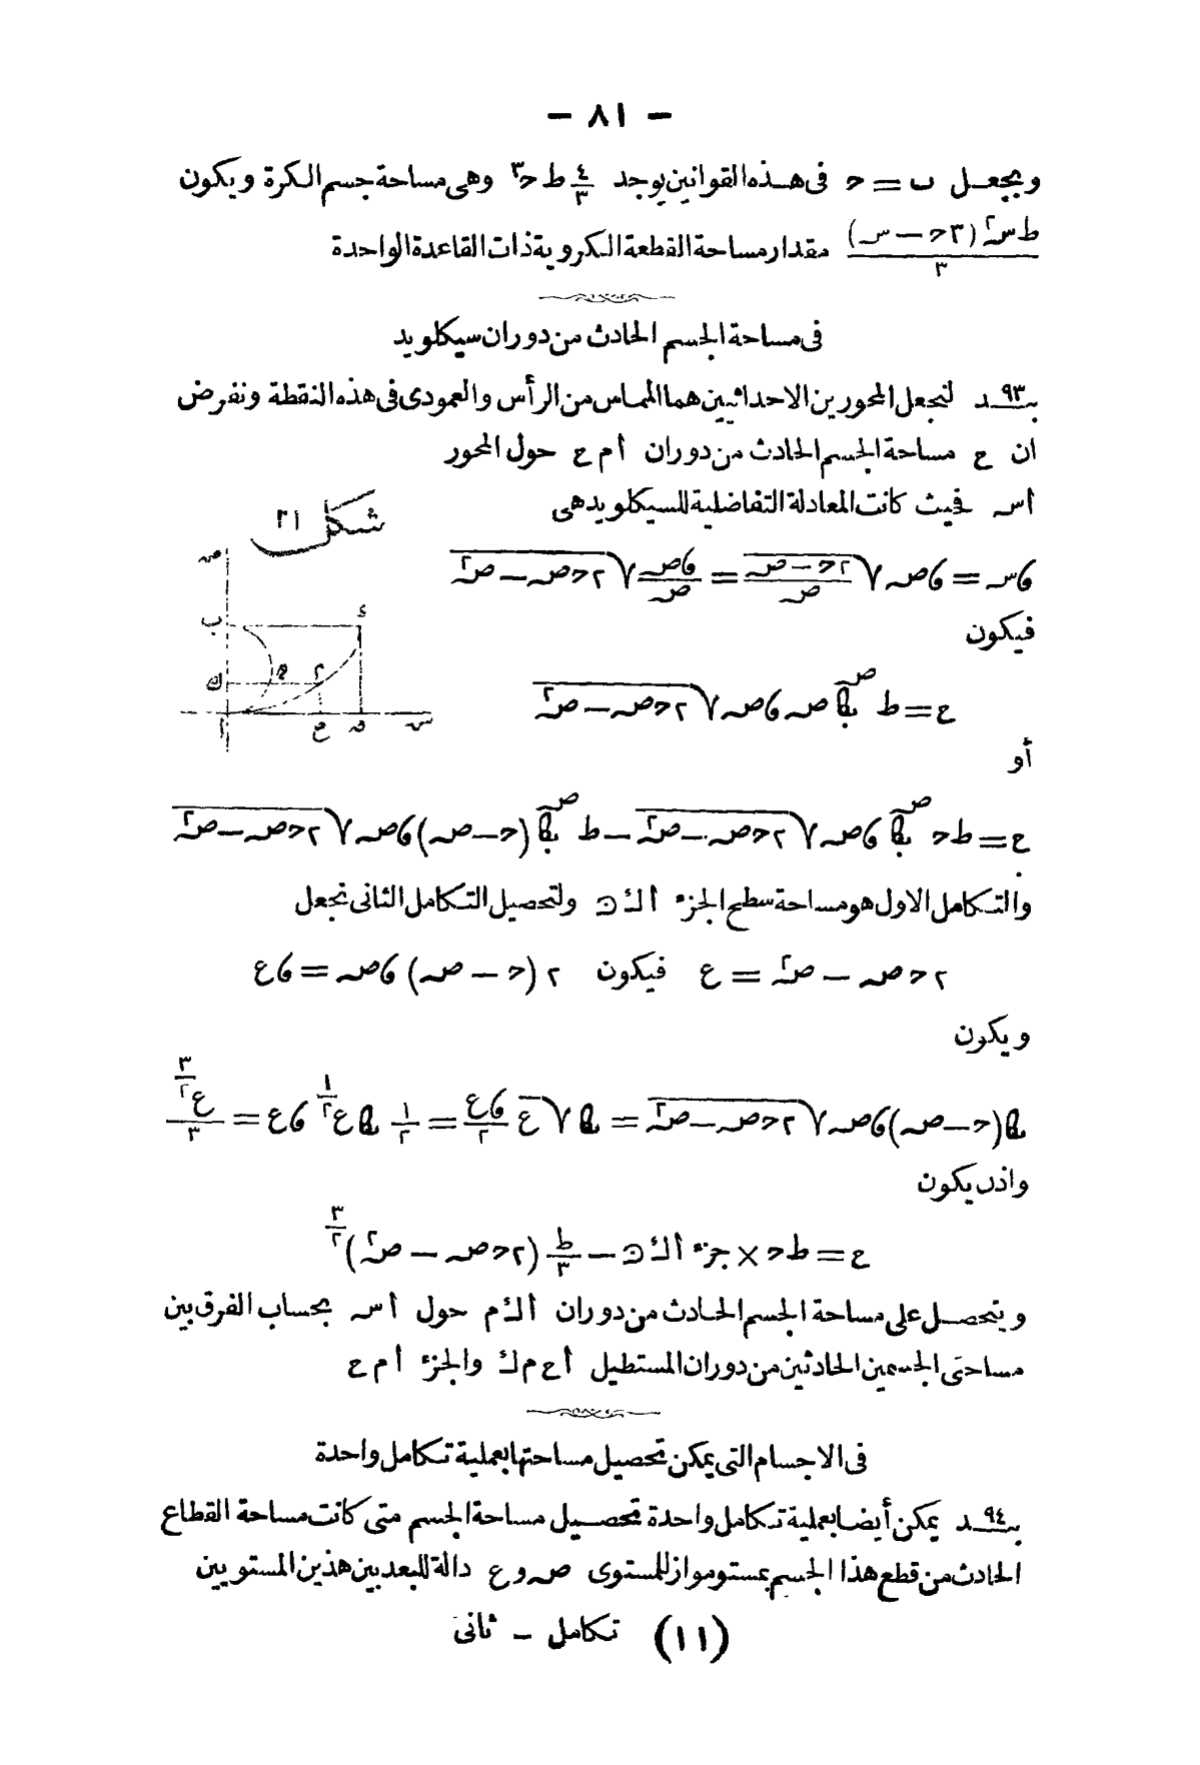 — ٨١ —
ويجعل ب = ح فى هذه القوانين يوجد ٤/٣ ط ح٣ وهى مساحة جسم الكرة ويكون
ط س٢ (٣ح — س)/٣ مقدار مساحة القطعة الكروية ذات القاعدة الواحدة
فى مساحة الجسم الحادث من دوران سيكلويد
بند ٩٣ لنجعل المحورين الاحداثيين هما المماس من الرأس والعمودى فى هذه النقطة ونفرض
ان ع مساحة الجسم الحادث من دوران أ م ح حول المحور
أس فحيث كانت المعادلة التفاضلية للسيكلويد هى
شكل ٢١
ص
ب
ء
ك
ه
م
أ
ح
ح
س
ءس = ءص √((٢ح — ص)/ص) = ءص/ص √(٢حص — ص٢)
فيكون
ع = ط ص ءص √(٢حص — ص٢)
أو
ع = ط ح ءص √(٢حص — ص٢) — ط (ح — ص) ءص √(٢حص — ص٢)
والتكامل الاول هو مساحة سطح الجزء أ ك ه ولتحصيل التكامل الثانى نجعل
٢حص — ص٢ = ع فيكون ٢ (ح — ص) ءص = ءع
ويكون
(ح — ص) ءص √(٢حص — ص٢) = √ع ءع/٢ = ١/٢ ع١/٢ ءع = ع٣/٢/٣
واذن يكون
ع = ط ح × جزء أ ك ه — ط/٣ (٢حص — ص٢)٣/٢
ويتحصل على مساحة الجسم الحادث من دوران أ ك م حول أس بحساب الفرق بين
مساحتى الجسمين الحادثين من دوران المستطيل أ ح م ك والجزء أ م ح
فى الاجسام التى يمكن تحصيل مساحتها بعملية تكامل واحدة
بند ٩٤ يمكن أيضا بعملية تكامل واحدة تحصيل مساحة الجسم متى كانت مساحة القطاع
الحادث من قطع هذا الجسم بمستو مواز للمستوى ص و ع دالة للبعد بين هذين المستويين
(١١) تكامل — ثانى